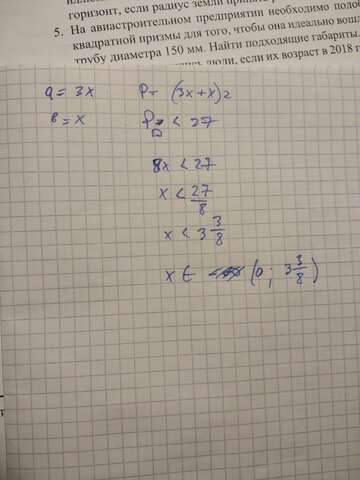 горизонт, если радиус земли
5. На авиастроительном предприятии необходимо
квадратной призмы для того, чтобы она идеально
трубу диаметра 150 мм. Найти подходящие габариты.
люди, если их возраст в 2018 г
a = 3x P = (3x+x)2
b = x P < 27
8x < 27
x < 27/8
x < 3 3/8
x ∈ (0; 3 3/8)